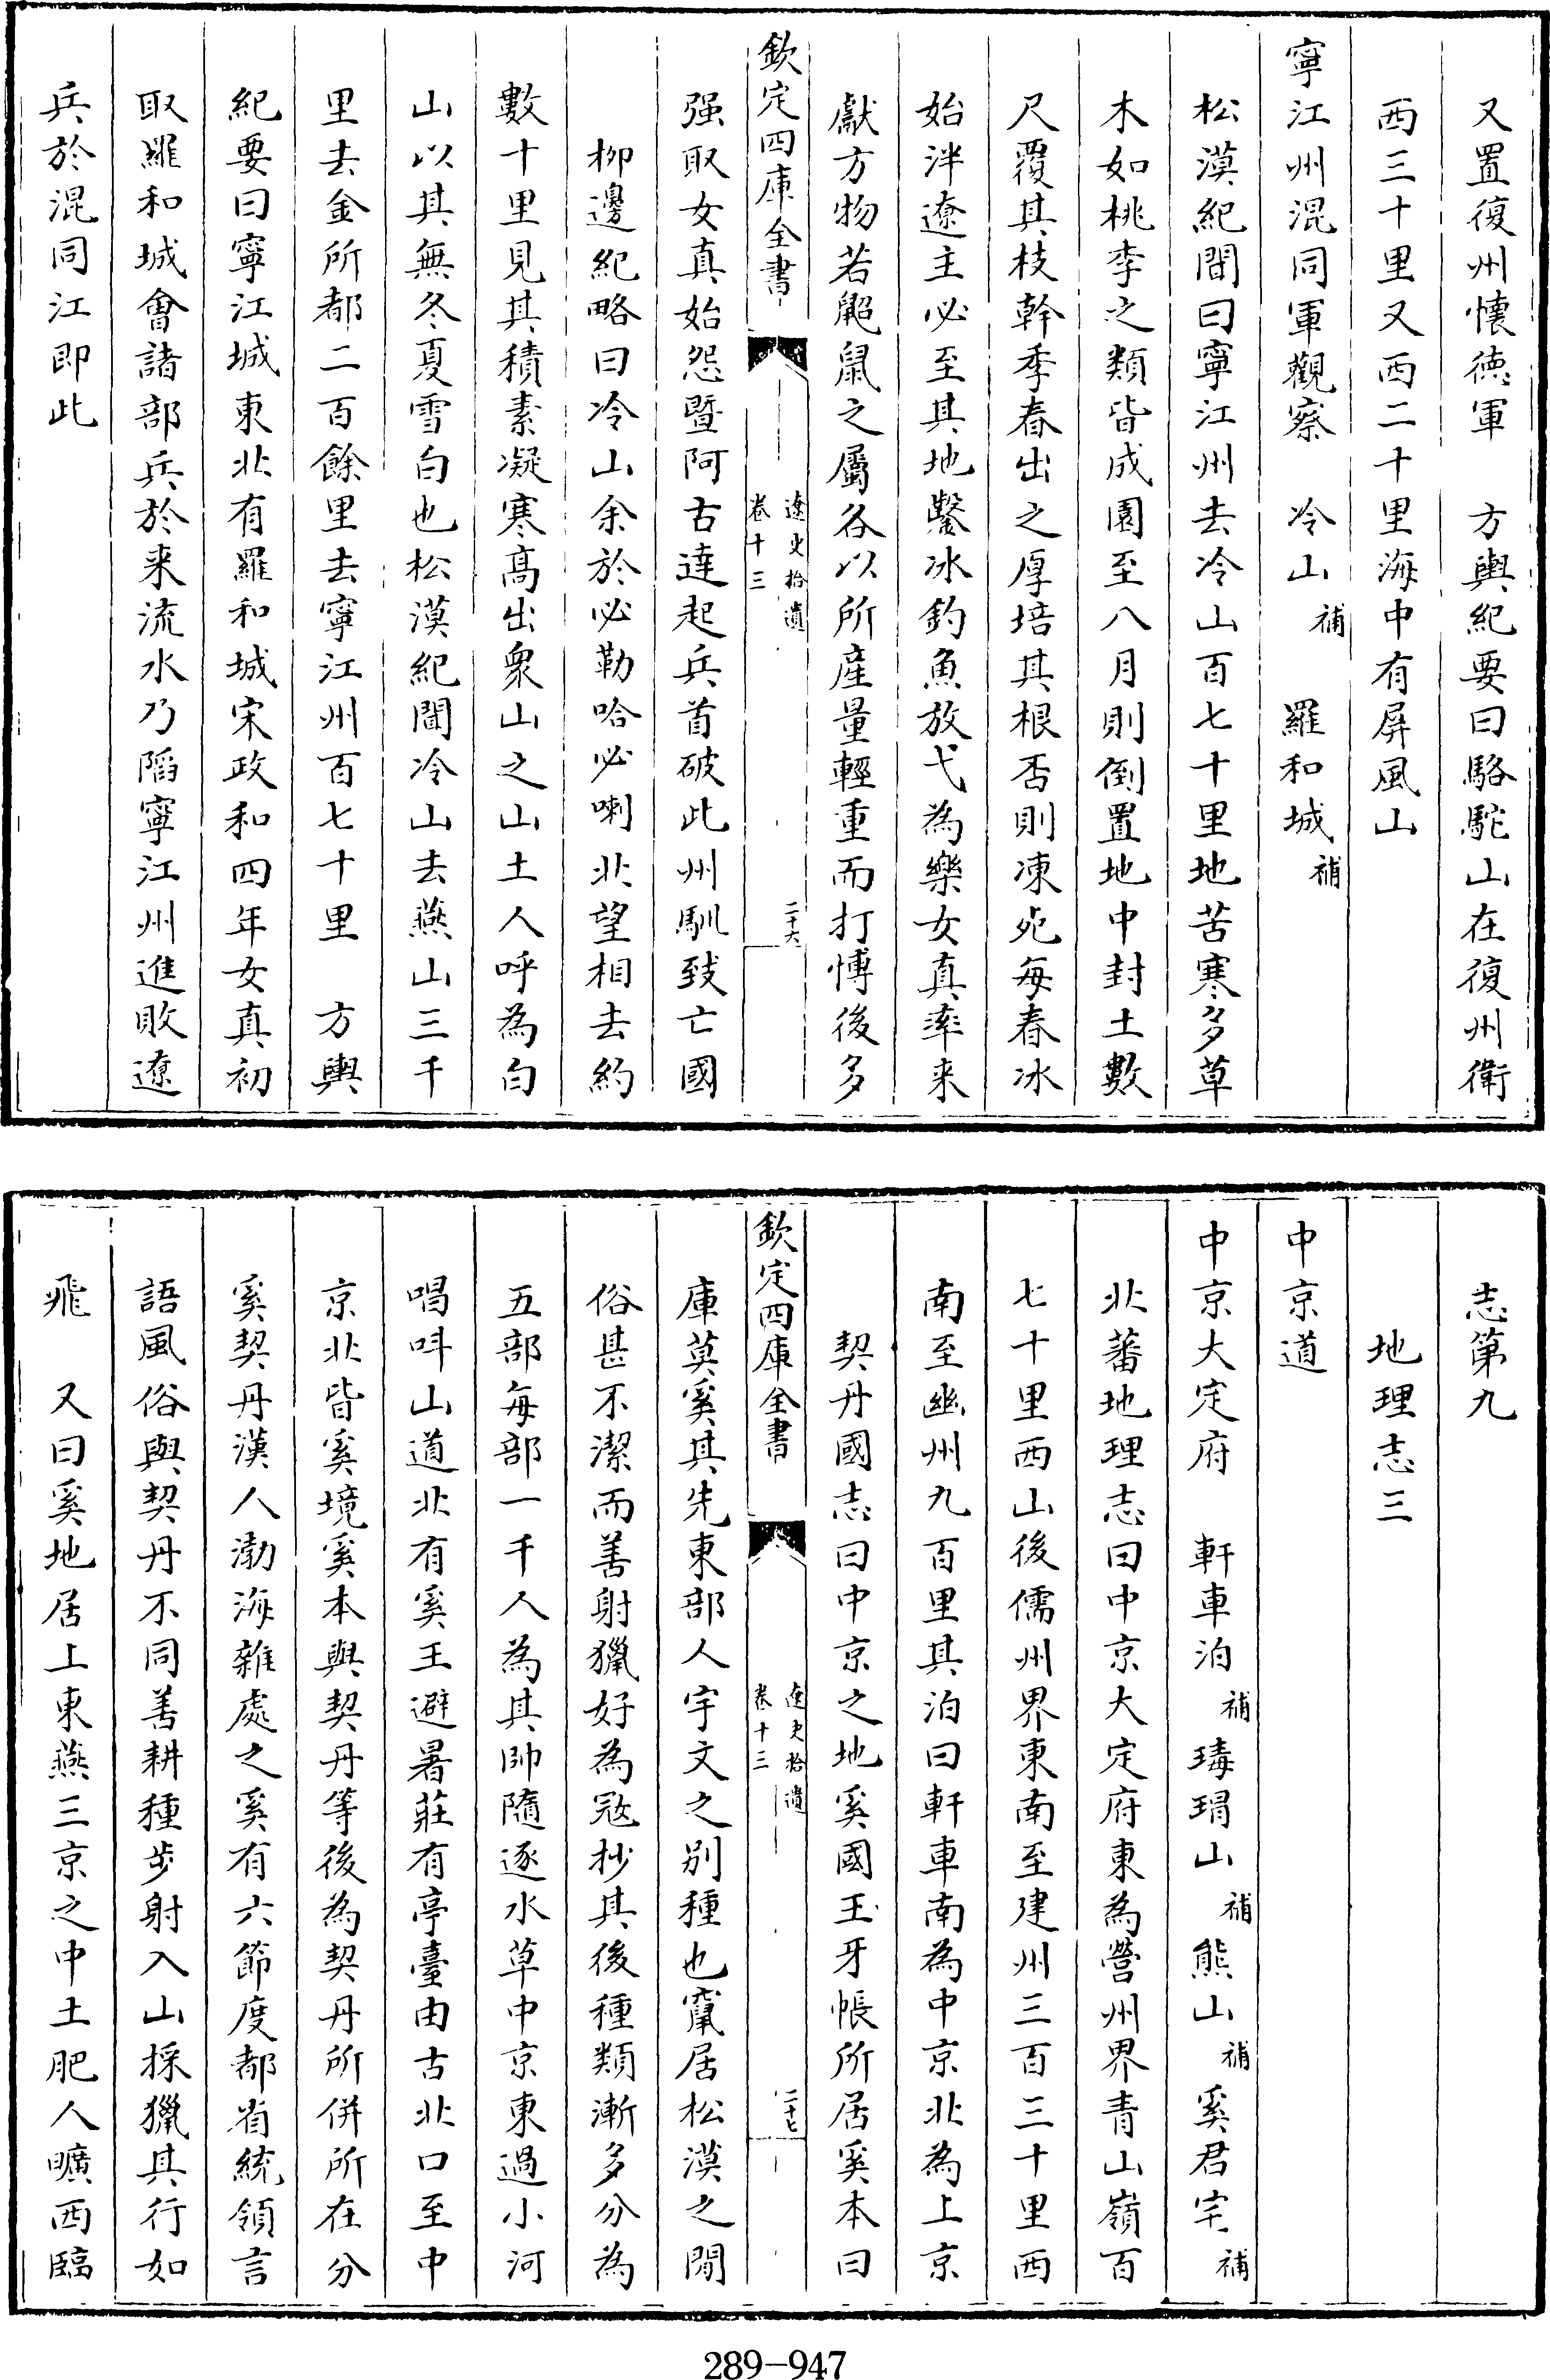 又置復州懷德軍　方輿紀要曰駱駝山在復州衛
西三十里又西二十里海中有屏風山
寧江州混同軍觀察　冷山補　羅和城補
松漠紀聞曰寧江州去冷山百七十里地苦寒多草
木如桃李之類皆成園至八月則倒置地中封土數
尺覆其枝幹季春出之厚培其根否則凍死每春冰
始泮遼主必至其地鑿冰釣魚放弋為樂女真率来
獻方物若貂鼠之屬各以所産量輕重而打博後多
欽定四庫全書　遼史拾遺　卷十三　二十六
强取女真始怨暨阿古達起兵首破此州馴致亡國
柳邊紀略曰冷山余於必勒哈必喇北望相去約
數十里見其積素凝寒高出衆山之山土人呼為白
山以其無冬夏雪白也松漠紀聞冷山去燕山三千
里去金所都二百餘里去寧江州百七十里　方輿
紀要曰寧江城東北有羅和城宋政和四年女真初
取羅和城會諸部兵於来流水乃䧟寧江州進敗遼
兵於混同江即此
志第九
地理志三
中京道
中京大定府　軒車泊補　瑇瑁山補　熊山補　奚君宅補
北蕃地理志曰中京大定府東為營州界青山嶺百
七十里西山後儒州界東南至建州三百三十里西
南至幽州九百里其泊曰軒車南為中京北為上京
契丹國志曰中京之地奚國王牙帳所居奚本曰
欽定四庫全書　遼史拾遺　卷十三　二十七
庫莫奚其先東部人宇文之别種也竄居松漠之間
俗甚不潔而善射獵好為寇抄其後種類漸多分為
五部每部一千人為其帥隨逐水草中京東過小河
唱呌山道北有奚王避暑莊有亭臺由古北口至中
京北皆奚境奚本與契丹等後為契丹所併所在分
奚契丹漢人渤海雜處之奚有六節度都省統領言
語風俗與契丹不同善耕種步射入山採獵其行如
飛　又曰奚地居上東燕三京之中土肥人曠西臨
289-947